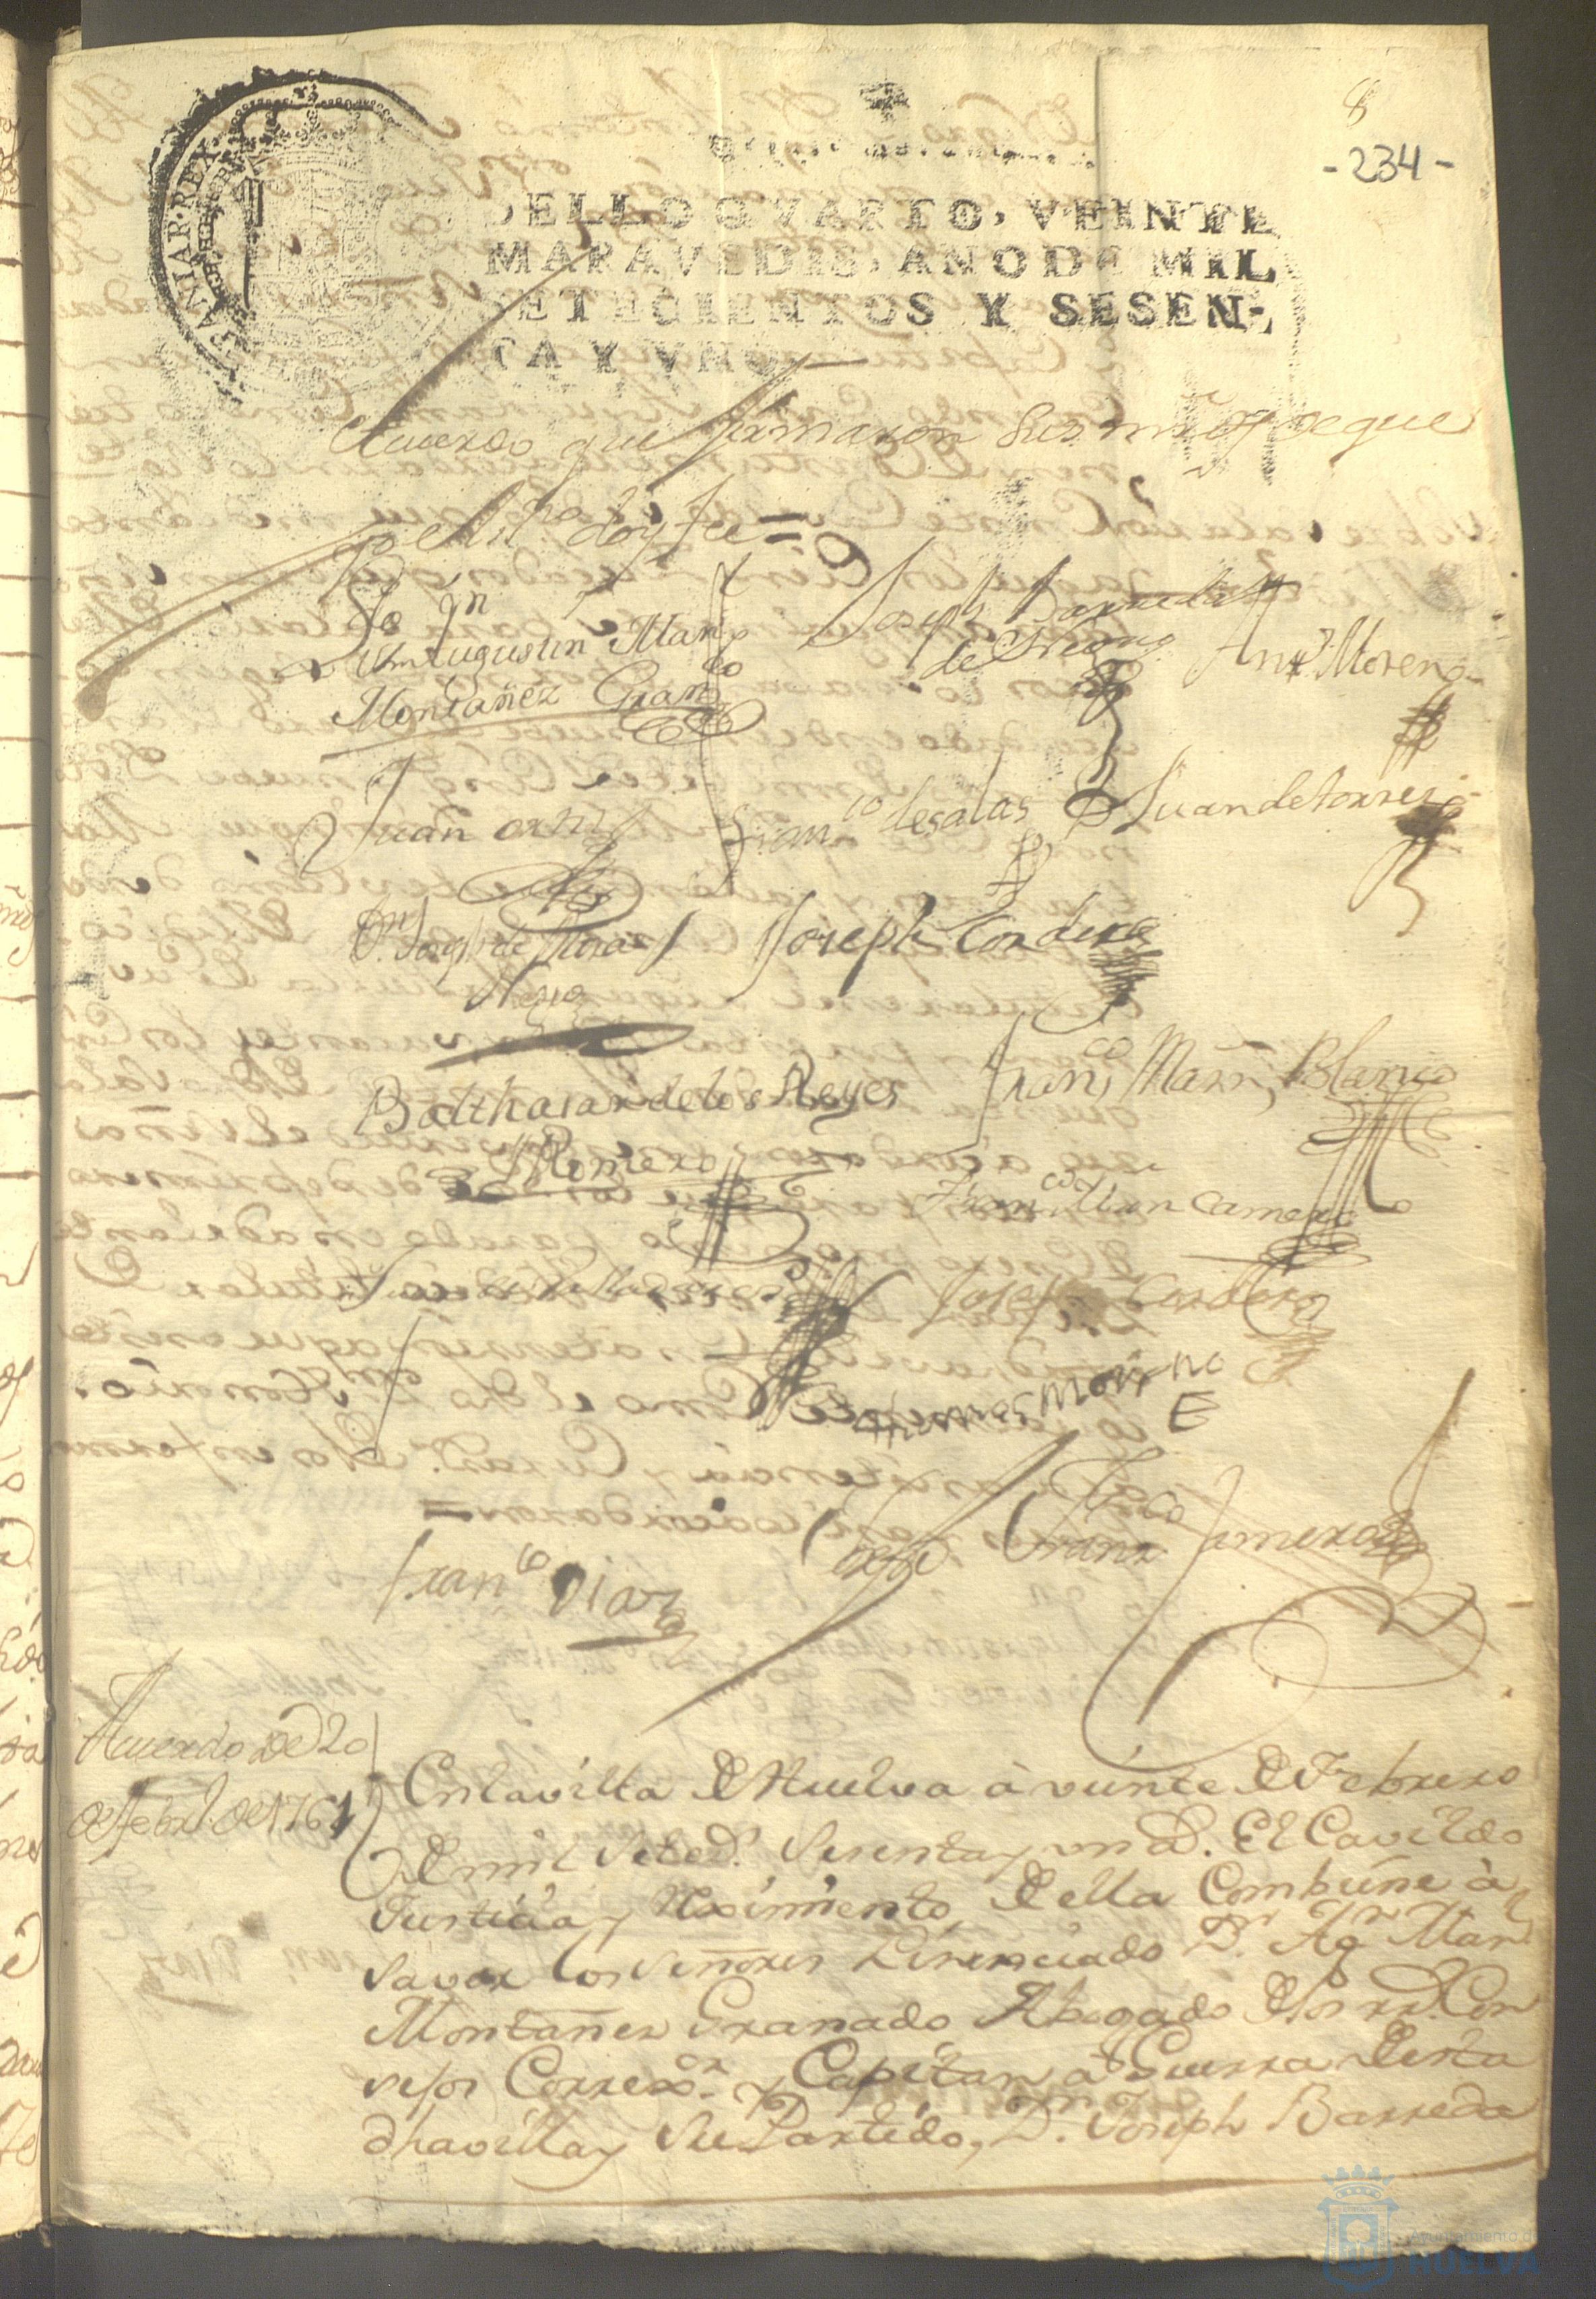 8
-234-
SELLO QVARTO, VEINTE
MARAVEDIS, AÑO DE MIL
SETECIENTOS Y SESEN-
TA Y VNO.
Acuerdo que firmaron sus mrds de que
yo el ssno doy fee=
Lizdo Dn
Augustin Marn
Montañez Grando
Joseph Barreda
de
Antt Moreno
Juan orttiz
Franco de salas
Juan de torres
Dn Joseph de Mora
Negro
Joseph Cordero
Balthasar de los Reyes
Romero
Franco Marn Blanco
Franco Mrn Camero
Joseph Cordero
thomas Moreno
E
Franco Diaz
Franco Romero
Acuerdo de 20
de febro de 1761
En la villa de Huelva à veinte de Febrero
de mil setesd. sesenta y un ad. El Cavildo
Justicia y Reximiento de ella Combiene à
saver los señores Lisenciado Dn Agn Marn
Montañez Granado Abogado de los rrs. Con
sejos Correxor y Capitan à Guerra desta
dha villa y su Partido, Dn Joseph Barreda
Ayuntamiento de
HUELVA